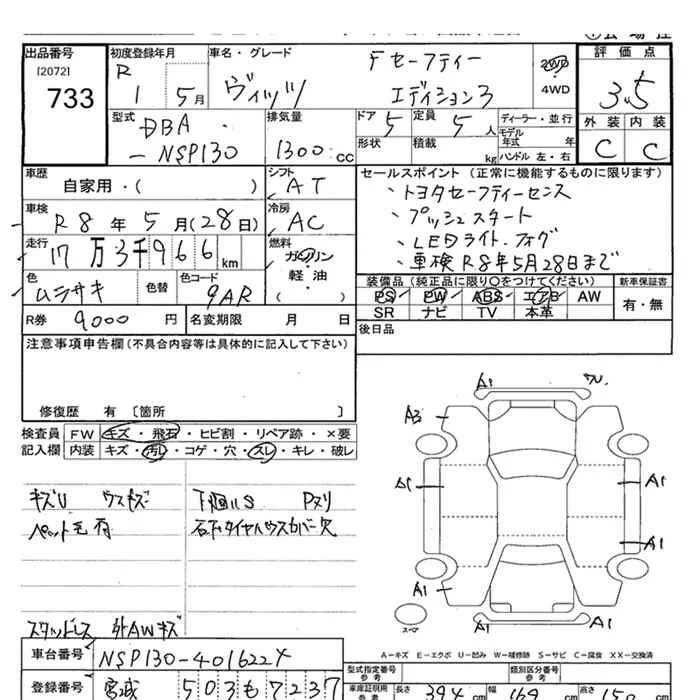 出品番号
[2072]
733
初度登録年月
R 1 5月
車名・グレード
ヴィッツ
F セーフティー
エディション3
2WD
4WD
評価点
3.5
外装 内装
C C
型式
DBA
- NSP130
排気量
1300 cc
ドア 5
定員 5人
形状
積載 kg
ディーラー・並行
モデル年式 年
ハンドル 左・右
車歴
自家用・( )
シフト
AT
車検
R8年5月(28日)
冷房
AC
走行
17万3千966km
燃料
ガソリン
軽・油
( )
色
ムラサキ
色替
色コード
9AR
R券 9000円
名変期限 月 日
セールスポイント (正常に機能するものに限ります)
・トヨタセーフティーセンス
・プッシュスタート
・LEDライト.フォグ
・車検R8年5月28日まで
装備品 (純正品に限り○をつけてください)
新車保証書
PS PW ABS エアB AW
SR ナビ TV 本革
有・無
後日品
注意事項申告欄 (不具合内容等は具体的に記入して下さい)
修復歴 有 〔箇所 〕
検査員記入欄
FW キズ・飛石・ヒビ割・リペア跡・×要
内装 キズ・汚レ・コゲ・穴・スレ・キレ・破レ
キズU ウスキズ
下廻リS Pヌリ
ペット毛有
右フロタイヤハウスカバー欠
スタッドレス 外AWキズ
A1
A3
A1
A1
A1
A1
A1
A1
A1
スペア
A-キズ E-エクボ U-凹み W-補修跡 S-サビ C-腐食 XX-交換済
車台番号
NSP130-4016224
登録番号
宮城 503 も 7237
型式指定番号
類別区分番号
参考
車庫証明用
長さ 394 cm
幅 169 cm
高さ 150 cm